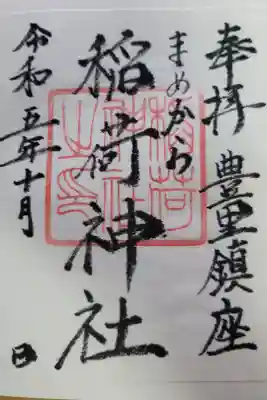 奉拝 豊里鎮座
まめがわ
稲荷神社
令和五年十月 日